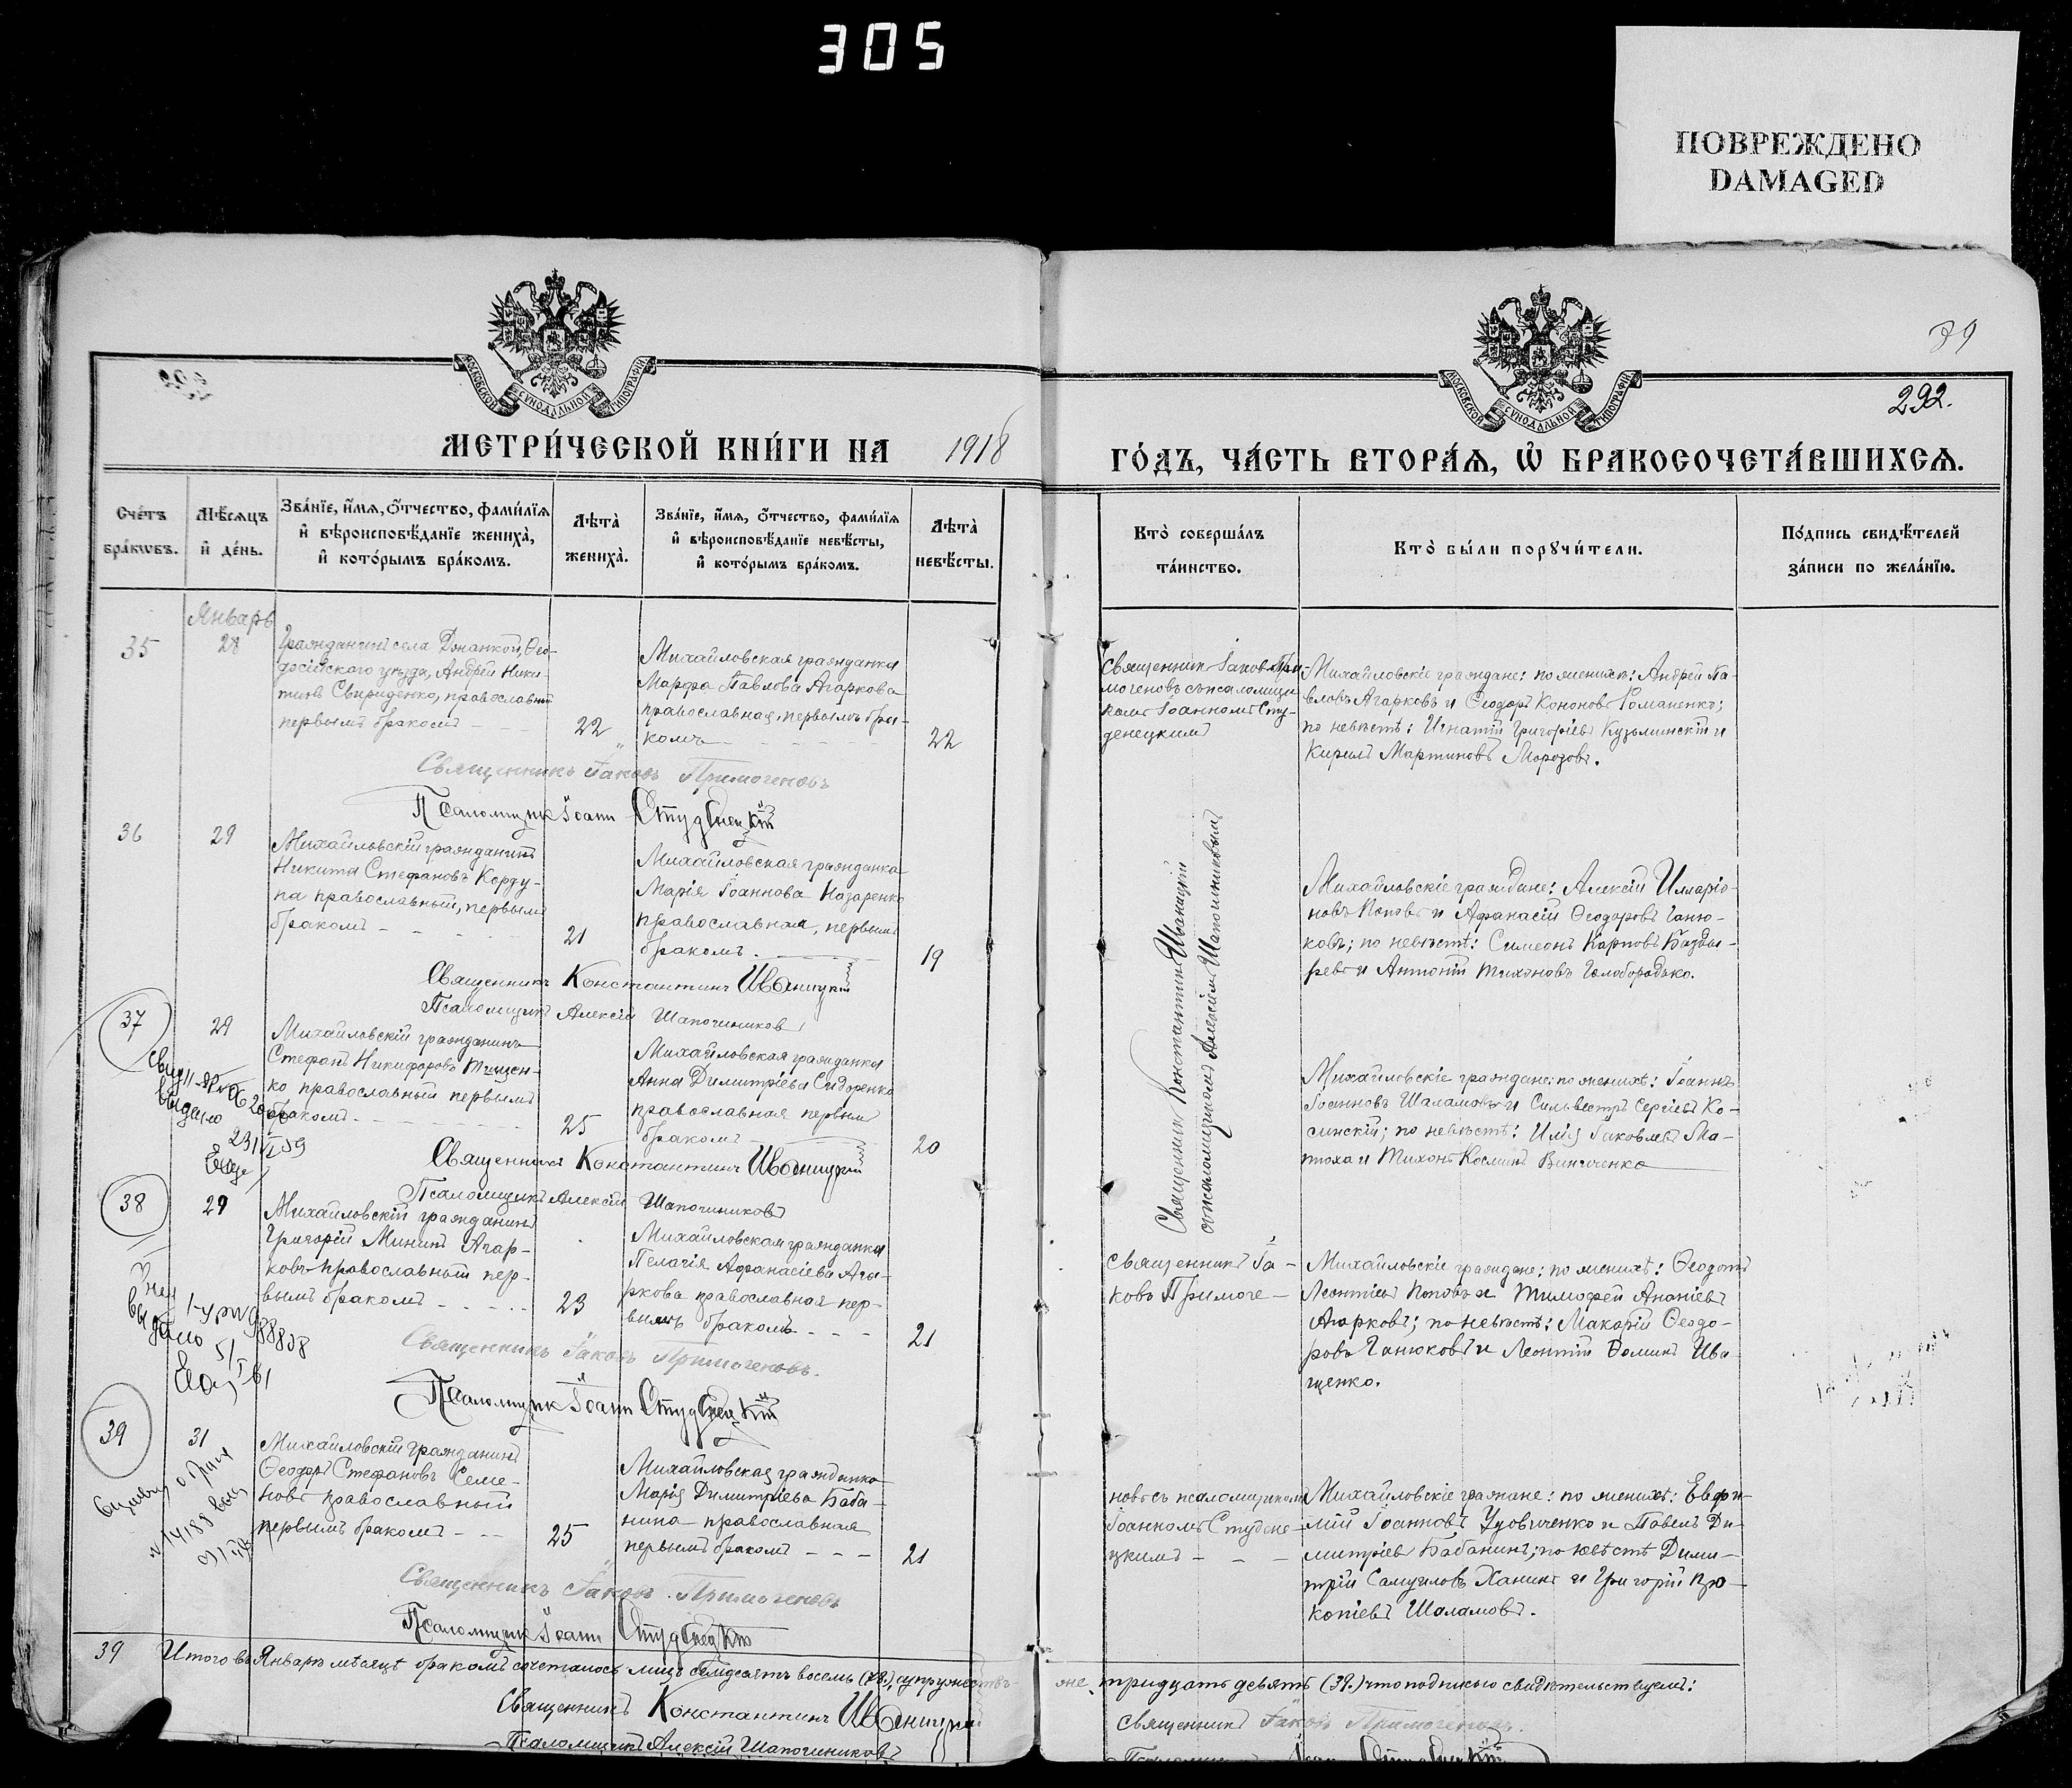 305
ПОВРЕЖДЕНО
DAMAGED
39
292.
МОСКОВСКОЙ СѴНОДАЛЬНОЙ ТИПОГРАФІИ
МОСКОВСКОЙ СѴНОДАЛЬНОЙ ТИПОГРАФІИ
МЕТРИ́ЧЕСКОЙ КНИ́ГИ НА 1918
ГО́ДЪ, ЧА́СТЬ ВТОРА́Ѧ, Ѡ҆ БРАКОСОЧЕТА́ВШИХСѦ.
Сче́тъ
бра́кѡвъ.
Мѣ́сѧцъ
и҆ де́нь.
Зва́нїе, и҆́мѧ, о҆́тчество, фами́лїѧ
и҆ вѣроисповѣ́данїе жениха̀,
и҆ кото́рымъ бра́комъ.
Лѣта̀
жениха̀.
Зва́нїе, и҆́мѧ, о҆́тчество, фами́лїѧ
и҆ вѣроисповѣ́данїе невѣ́сты,
и҆ кото́рымъ бра́комъ.
Лѣта̀
невѣ́сты.
Кто̀ соверша́лъ
та́инство.
Кто̀ бы́ли порꙋчи́тели.
По́дпись свидѣ́телей
за́писи по жела́нїю.
Январь
35
28
Гражданинъ села Джанкой, Ѳео-
досійского уѣзда, Андрей Ники-
тинъ Свириденко, православный
первымъ бракомъ
22
Михайловская гражданка
Марфа Павлова Агаркова
православная, первымъ бра-
комъ
22
Священник Іаковъ При-
могеновъ съ псаломщи-
комъ Іоанномъ Сту-
денецкимъ
Михайловскіе граждане: по женихѣ: Андрей Па-
вловъ Агарковъ и Ѳеодоръ Кононовъ Романенко;
по невѣстѣ: Игнатій Григоріевъ Кузьминскій и
Кирилъ Мартиновъ Морозовъ.
Священникъ Іаковъ Примогеновъ
Псаломщик Іоанн Студенецкій
36
29
Михайловскій гражданинъ
Никита Стефановъ Корду-
па православный, первымъ
бракомъ
21
Михайловская гражданка
Марія Іоаннова Назаренко
православная, первымъ
бракомъ
19
Священник Константин Иваницкій
съ псаломщиком Алексѣем Шапочниковым
Михайловскіе граждане: Алексій Иларіо-
новъ Поповъ и Афанасій Ѳеодоровъ Ганю-
ковъ; по невѣстѣ: Симеонъ Карповъ Базды-
ревъ и Антоній Тихоновъ Голобородько.
Священникъ Константинъ Иваницкій
Псаломщикъ Алексій Шапочниковъ
37
29
Михайловскій гражданинъ
Стефанъ Никифоровъ Тищен-
ко православный первымъ
бракомъ
25
Михайловская гражданка
Анна Димитріева Сидоренко
православная первым
бракомъ
20
Михайловскіе граждане: по женихѣ: Іоаннъ
Іоанновъ Шаламовъ и Сильвестръ Сергіевъ Ко-
синскій; по невѣстѣ: Илія Іаковлевъ Ма-
тюха и Тихонъ Косминъ Виниченко
выдано
Священникъ Константинъ Иваницкій
Псаломщикъ Алексій Шапочниковъ
38
29
Михайловскій гражданинъ
Григорій Мининъ Агар-
ковъ православный пер-
вымъ бракомъ
23
Михайловская гражданка
Пелагія Афанасіева Ага-
ркова православная пер-
вымъ бракомъ
21
Священникъ Іа-
ковъ Примоге-
Михайловскіе граждане; по женихѣ: Ѳеодотъ
Леонтіевъ Поповъ и Тимофей Ананіевъ
Агарковъ; по невѣстѣ: Макарій Ѳеодо-
ровъ Ганюковъ и Леонтій Ѳоминъ Ива-
щенко.
выдано
Священникъ Іаковъ Примогеновъ.
Псаломщик Іоанн Студенецкій
39
31
Михайловскій гражданинъ
Ѳеодоръ Стефановъ Семе-
новъ православный
первымъ бракомъ
25
Михайловская гражданка
Марія Димитріева Баба-
нина православная
первымъ бракомъ
21
новъ съ псаломщикомъ
Іоанномъ Студене-
цкимъ
Михайловскіе гражане: по женихѣ: Евфи-
мій Іоанновъ Удовиченко и Павелъ Ди-
митріевъ Бабанинъ; по невѣстѣ Дими-
трій Самуиловъ Ханинъ и Григорій Про-
копіевъ Шаламовъ.
Священникъ Іаковъ Примогеновъ
Псаломщик Іоанн Студенецкій
39 Итого въ Январѣ мѣсяцѣ бракомъ сочеталось лицъ семдесятъ восемь (78.), супружествъ
же, тридцать девять (39.) что подписью свидѣтельствуемъ:
Священникъ Константинъ Иваницкій
Псаломщикъ Алексій Шапочниковъ
Священникъ Іаковъ Примогеновъ.